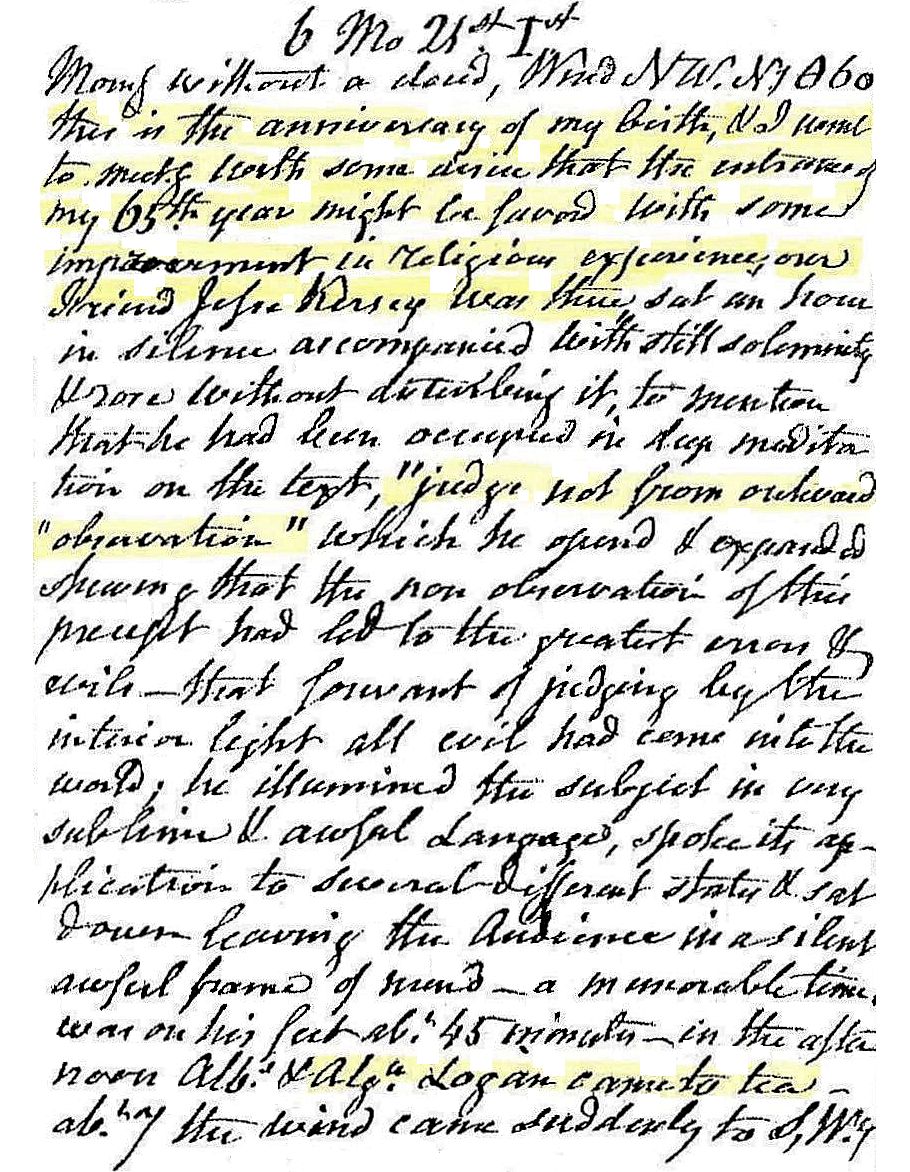 6 Mo 21st 1st
Morng without a cloud, Wind NW. N, @ 60
this is the anniversary of my birth, & I went
to meetg with some desire that the entrance of
my 65th year might be favord with some
improvement in religious experience, our
Friend Jesse Kersey was there sat an hour
in silence accompanied with still solemnity
& rose without disturbing it, to mention
that he had been occupied in deep medita
tion on the text, "judge not from outward
"observation" which he opend & expanded
shewing that the non observation of this
precept had led to the greatest errors &
evils — that for want of judging by the
interior light all evil had come into the
world; he illumined the subject in very
sublime & awful Langage, spoke its ap-
plication to several different states & sat
down leaving the Audience in a silent
awful frame of mind — a memorable time,
was on his feet abt 45 minutes — in the after
noon Albt & Alga Logan came to tea —
abt 7 the wind came suddenly to S, W. y